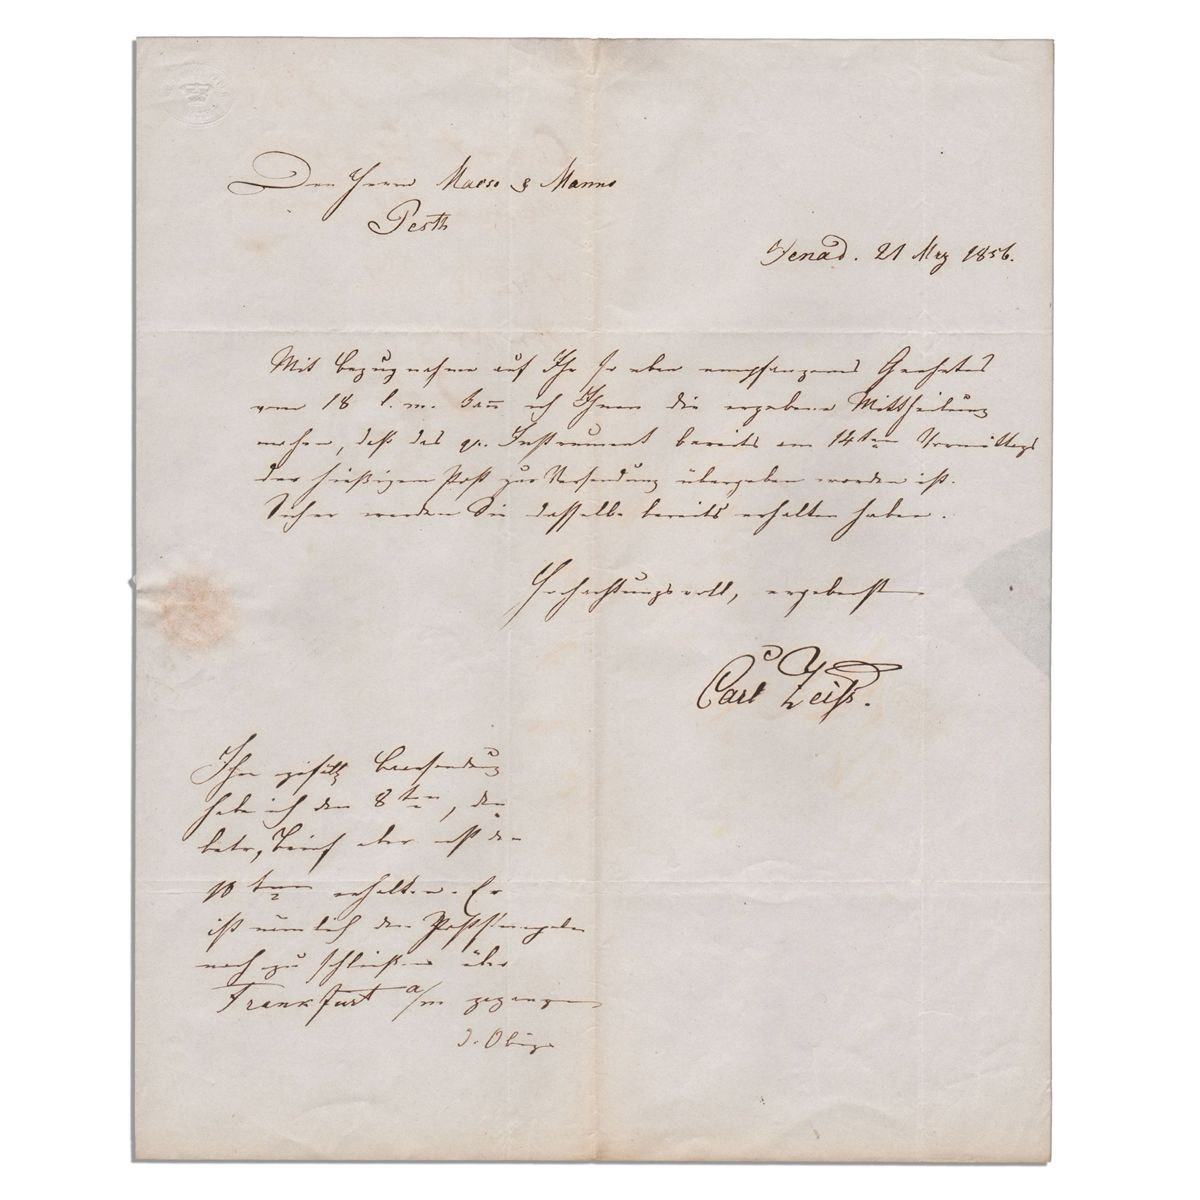 Den Herrn Maeso & Manno
Pesth
Jena d. 21 Mrz 1856.
Mit Bezugnahme auf Ihr so eben empfangenes Geehrtes
vom 18 l. m. kann ich Ihnen die ergebene Mittheilung
machen, daß das qu. Instrument bereits am 14ten Vormittags
der hiesigen Post zur Versendung übergeben worden ist.
Sicher werden Sie dasselbe bereits erhalten haben.
Hochachtungsvoll, ergebenst
Carl Zeiß.
Ihre gefällg
habe ich den 8ten, den
betr. Brief aber erst den
10ten erhalten. Er
ist nämlich dem Poststempel
nach zu schließen über
Frankfurt a/m gegangen
D. Obige